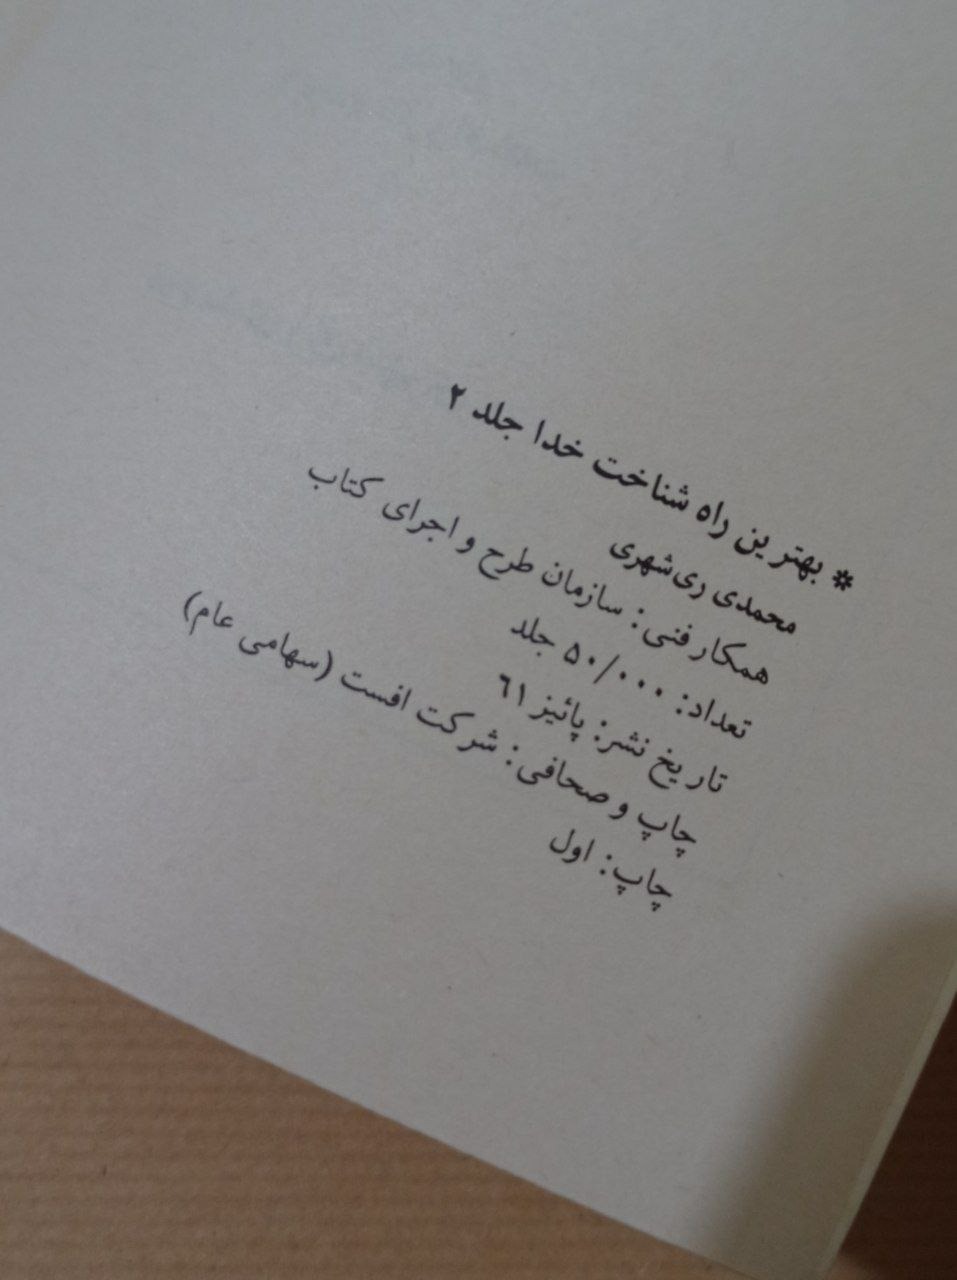 * بهترین راه شناخت خدا جلد ۲
محمدی ری‌شهری
همکار فنی: سازمان طرح و اجرای کتاب
تعداد: ۵۰/۰۰۰ جلد
تاریخ نشر: پائیز ۶۱
چاپ و صحافی: شرکت افست (سهامی عام)
چاپ: اول